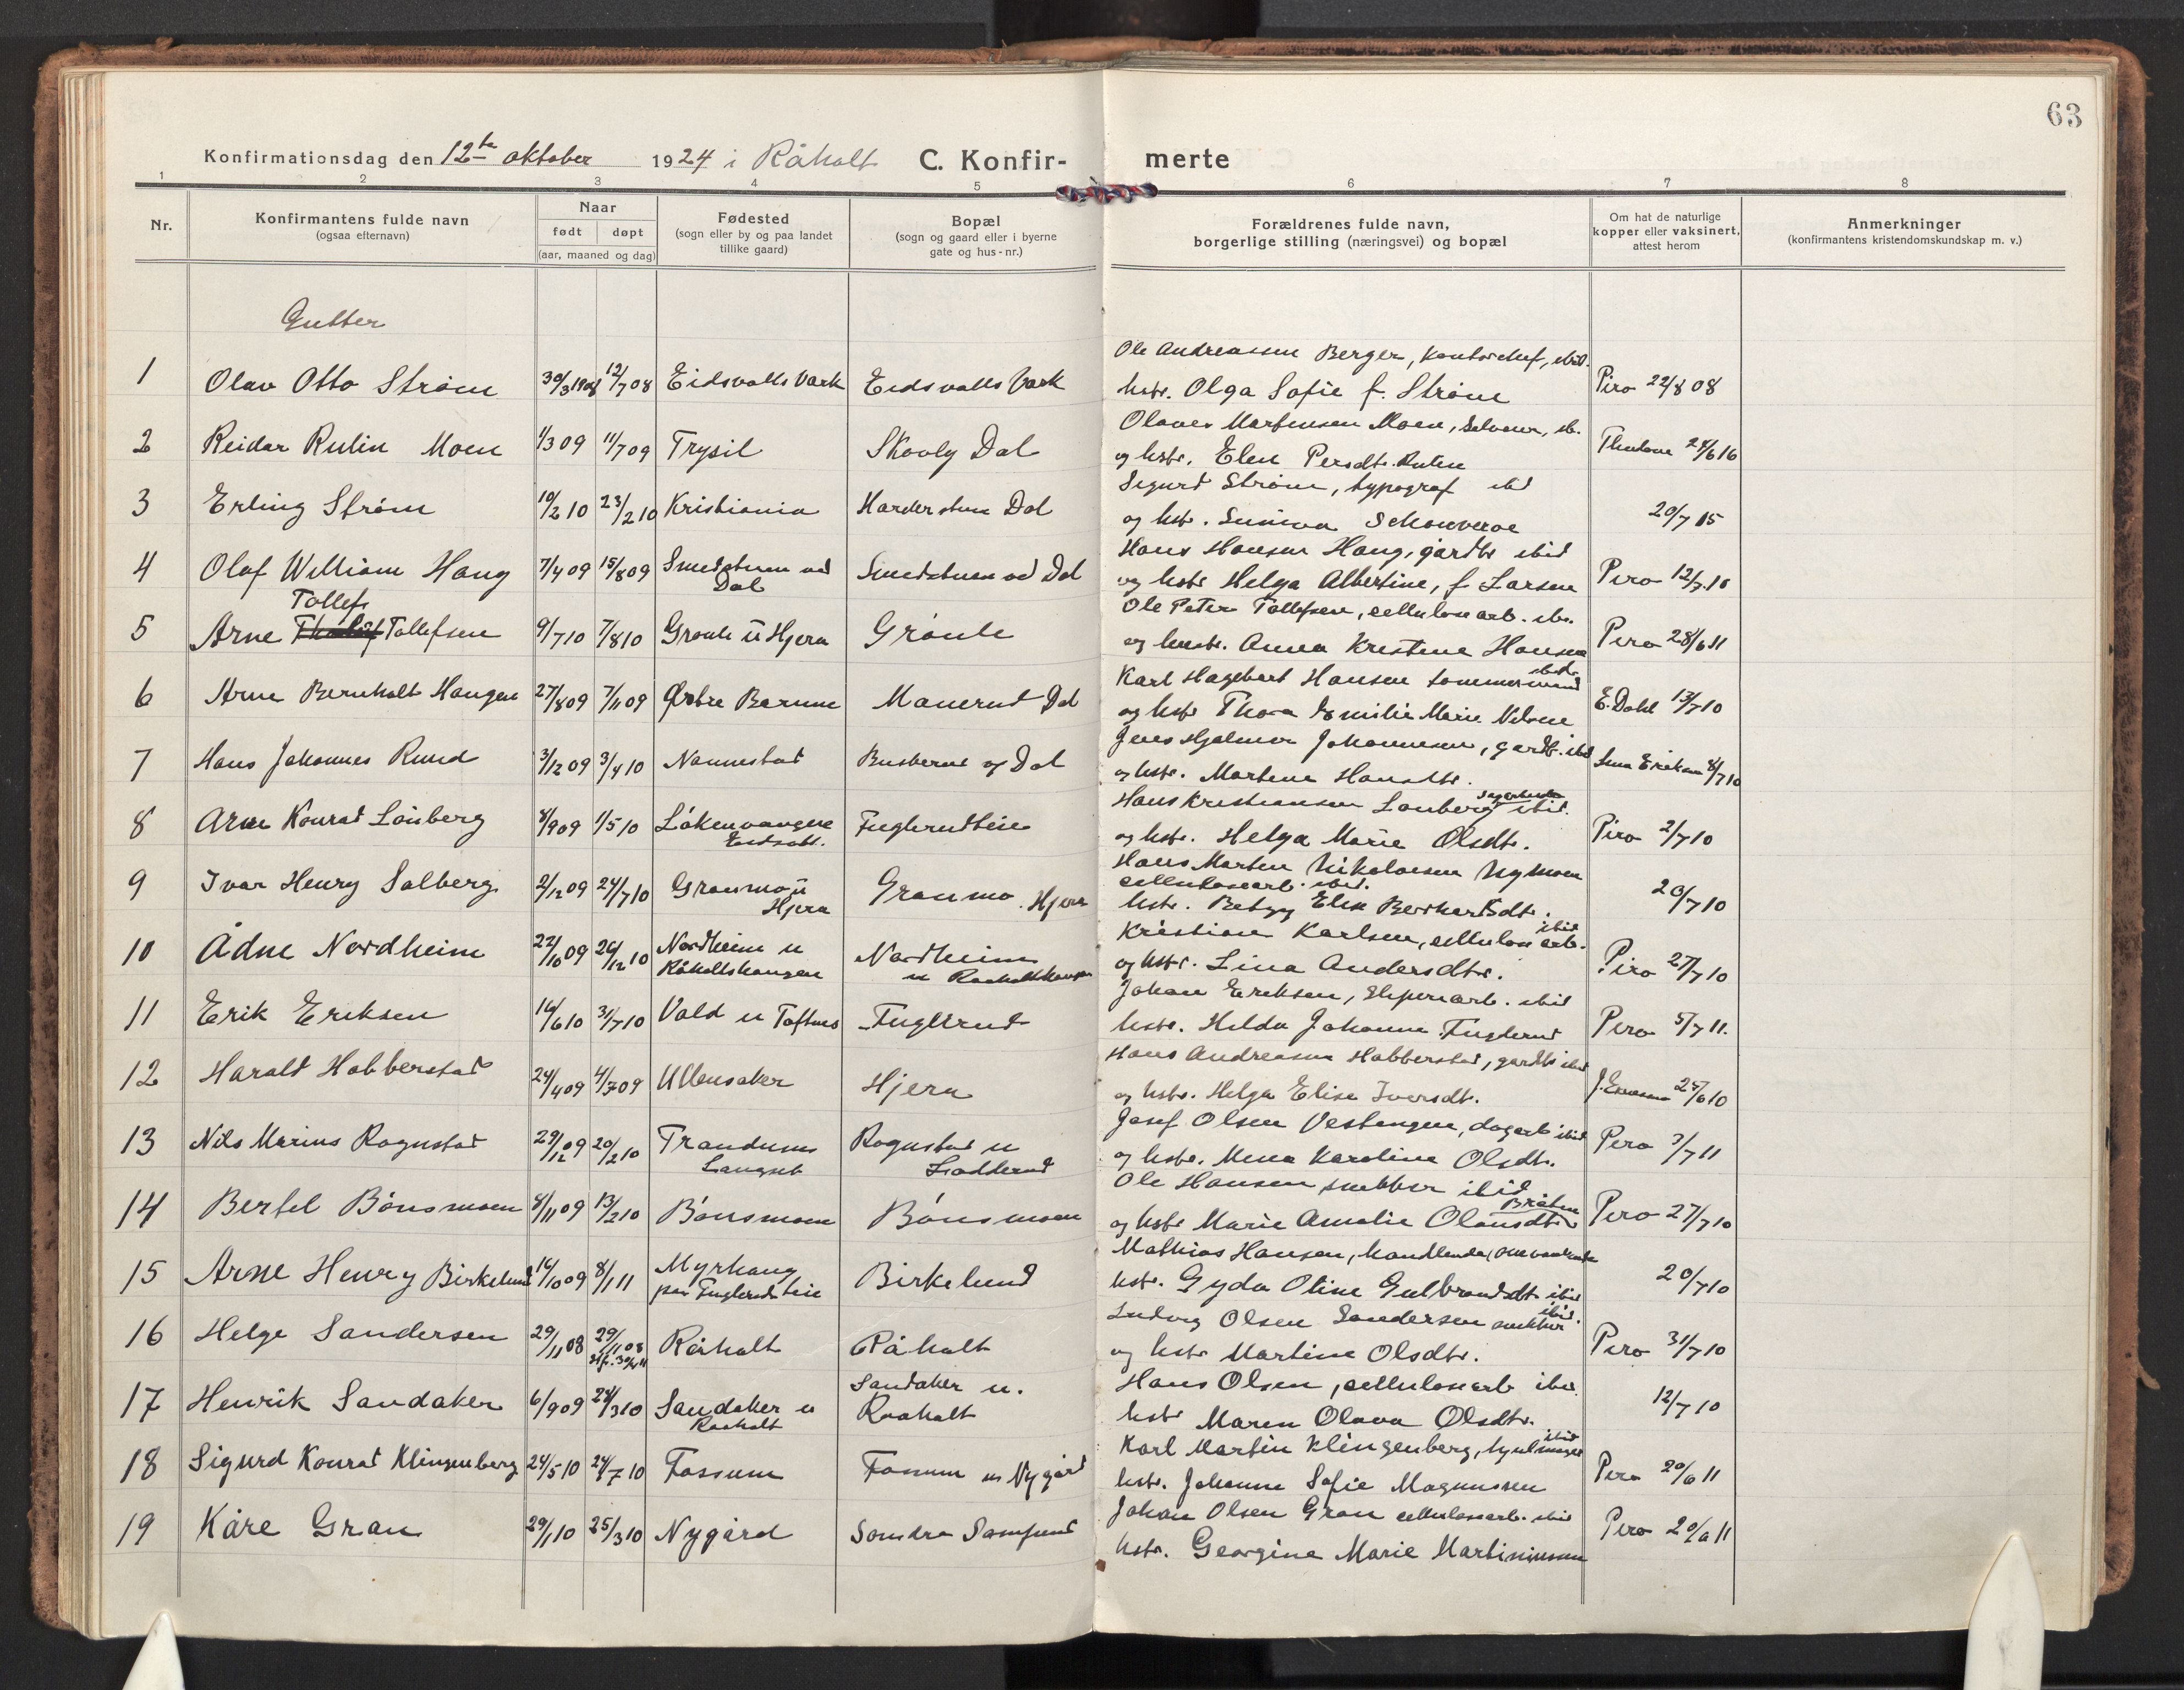 63
Konfirmationsdag den 12te oktober 1924 i Råholt C. Konfir- merte
1 2 3 4 5 6 7 8
Nr.
Konfirmantens fulde navn
(ogsaa efternavn)
Naar
født døpt
(aar, maaned og dag)
Fødested
(sogn eller by og paa landet
tillike gaard)
Bopæl
(sogn og gaard eller i byerne
gate og hus-nr.)
Forældrenes fulde navn,
borgerlige stilling (næringsvei) og bopæl
Om hat de naturlige
kopper eller vaksinert,
attest herom
Anmerkninger
(konfirmantens kristendomskundskap m. v.)
Gutter
Ole Andreassen Berger, kontorchef, ibid.
1 Olav Otto Strøm 30/3 1908 12/7 08 Eidsvolls Værk Eidsvolls Værk hstr. Olga Sofie f. Strøm Piro 22/8 08
Olaves Martinsen Moen,
2 Reidar Rulin Moen 1/3 09 11/7 09 Trysil Skovly Dal og hstr. Elen Persdtr. Thulin 24/6 16
Sigurd Strøm, typograf ibid
3 Erling Strøm 10/2 10 23/2 10 Kristiania Dal og hstr. Sunniva 20/7 15
Hans Hansen Haug, gårdbr ibid
4 Olaf William Haug 7/4 09 15/8 09 Smedstuen ved Dal Smedstuen ved Dal og hstr Helga Albertine, f Larsen Piro 12/7 10
Tollef
Ole Peter Tollefsen, cellulosearb. ib.
5 Arne Tollefsen 9/7 10 7/8 10 Grønli u Hjera Grønli og hustr. Anna Kristine Hansen Piro 28/6 11
Karl Hagebart Hansen tømmermand ibid.
6 Arne Bernholt Haugen 27/8 09 7/11 09 Østre Bærum Mauerud Dal og hstr Thora Emilie Marie Nilsen E. Dahl 13/7 10
Jens Hjalmar Johannesen, gårdb. ibid
7 Hans Johannes Rund 3/12 09 3/4 10 Nannestad Dal og hstr. Martine Hansdtr. Lena Eriksen 8/7 10
Hans Kristiansen Lønberg ibid.
8 Arne Konrad Lønberg 8/9 09 1/5 10 Løkenvangen Eidsvoll. Fuglerudteie og hstr. Helga Marie Olsdtr. Piro 2/7 10
Hans Martin Nikolaisen Nymoen
cellulosearb. ibid.
9 Ivar Henry Solberg 2/12 09 24/7 10 Granmo u Hjera Granmo Hjera hstr. Betzy Elise Berhartsdtr. 20/7 10
Kristian Karlsen, cellulosearb. ibid
10 Ådne Nordheim 22/10 09 26/12 10 Nordheim u Råholtshaugen Nordheim u Raaholtshaugen og hstr. Lina Andersdtr. Piro 27/7 10
Johan Eriksen, sliperiarb. ibid
11 Erik Eriksen 16/6 10 31/7 10 Vold u Toftnes Fuglerud hstr. Hilda Johanne Fuglerud Piro 5/7 11.
Hans Andreassen Habberstad, gårdbr ibid
12 Harald Habberstad 24/4 09 4/7 09 Ullensaker Hjera og hstr. Helga Elise Iversdtr. 25/6 10
Josef Olsen Vestengen, dagarb ibid
13 Nils Marius Rognstad 29/12 09 20/2 10 Trandum Langset Rognstad u Ladderud og hstr. Mina Karoline Olsdtr. Piro 3/7 11
Ole Hansen snekker ibid
14 Bertel Bønsmoen 8/11 09 13/2 10 Bønsmoen Bønsmoen og hstr Marie Amalie Olausdtr Bråten Piro 27/7 10
Mathias Hansen, handlende,
15 Arne Henry Birkelund 14/10 09 8/1 11 Myrhaug på Fuglerudteie Birkelund hstr. Gyda Otine Gulbrandsdtr ibid 20/7 10
Ludvig Olsen Sandersen snekker ibid.
16 Helge Sandersen 29/11 08 29/11 08 Råholt Råholt og hstr Martine Olsdtr. Piro 31/7 10
Hans Olsen, cellulosearb ibid.
17 Henrik Sandaker 6/9 09 28/3 10 Sandaker u Raaholt Sandaker u. Raaholt hstr Maren Olava Olsdtr. 12/7 10
Karl Martin Klingenberg, hjulmager ibid
18 Sigurd Konrad Klingenberg 24/5 10 24/7 10 Fossum Fossum u Nygård hstr. Johanne Sofie Magnussen Piro 20/6 11
Johan Olsen Gran cellulosearb. ibid
19 Kåre Gran 29/1 10 25/3 10 Nygård Søndre hstr. Georgine Marie Martiniussen Piro 20/6 11